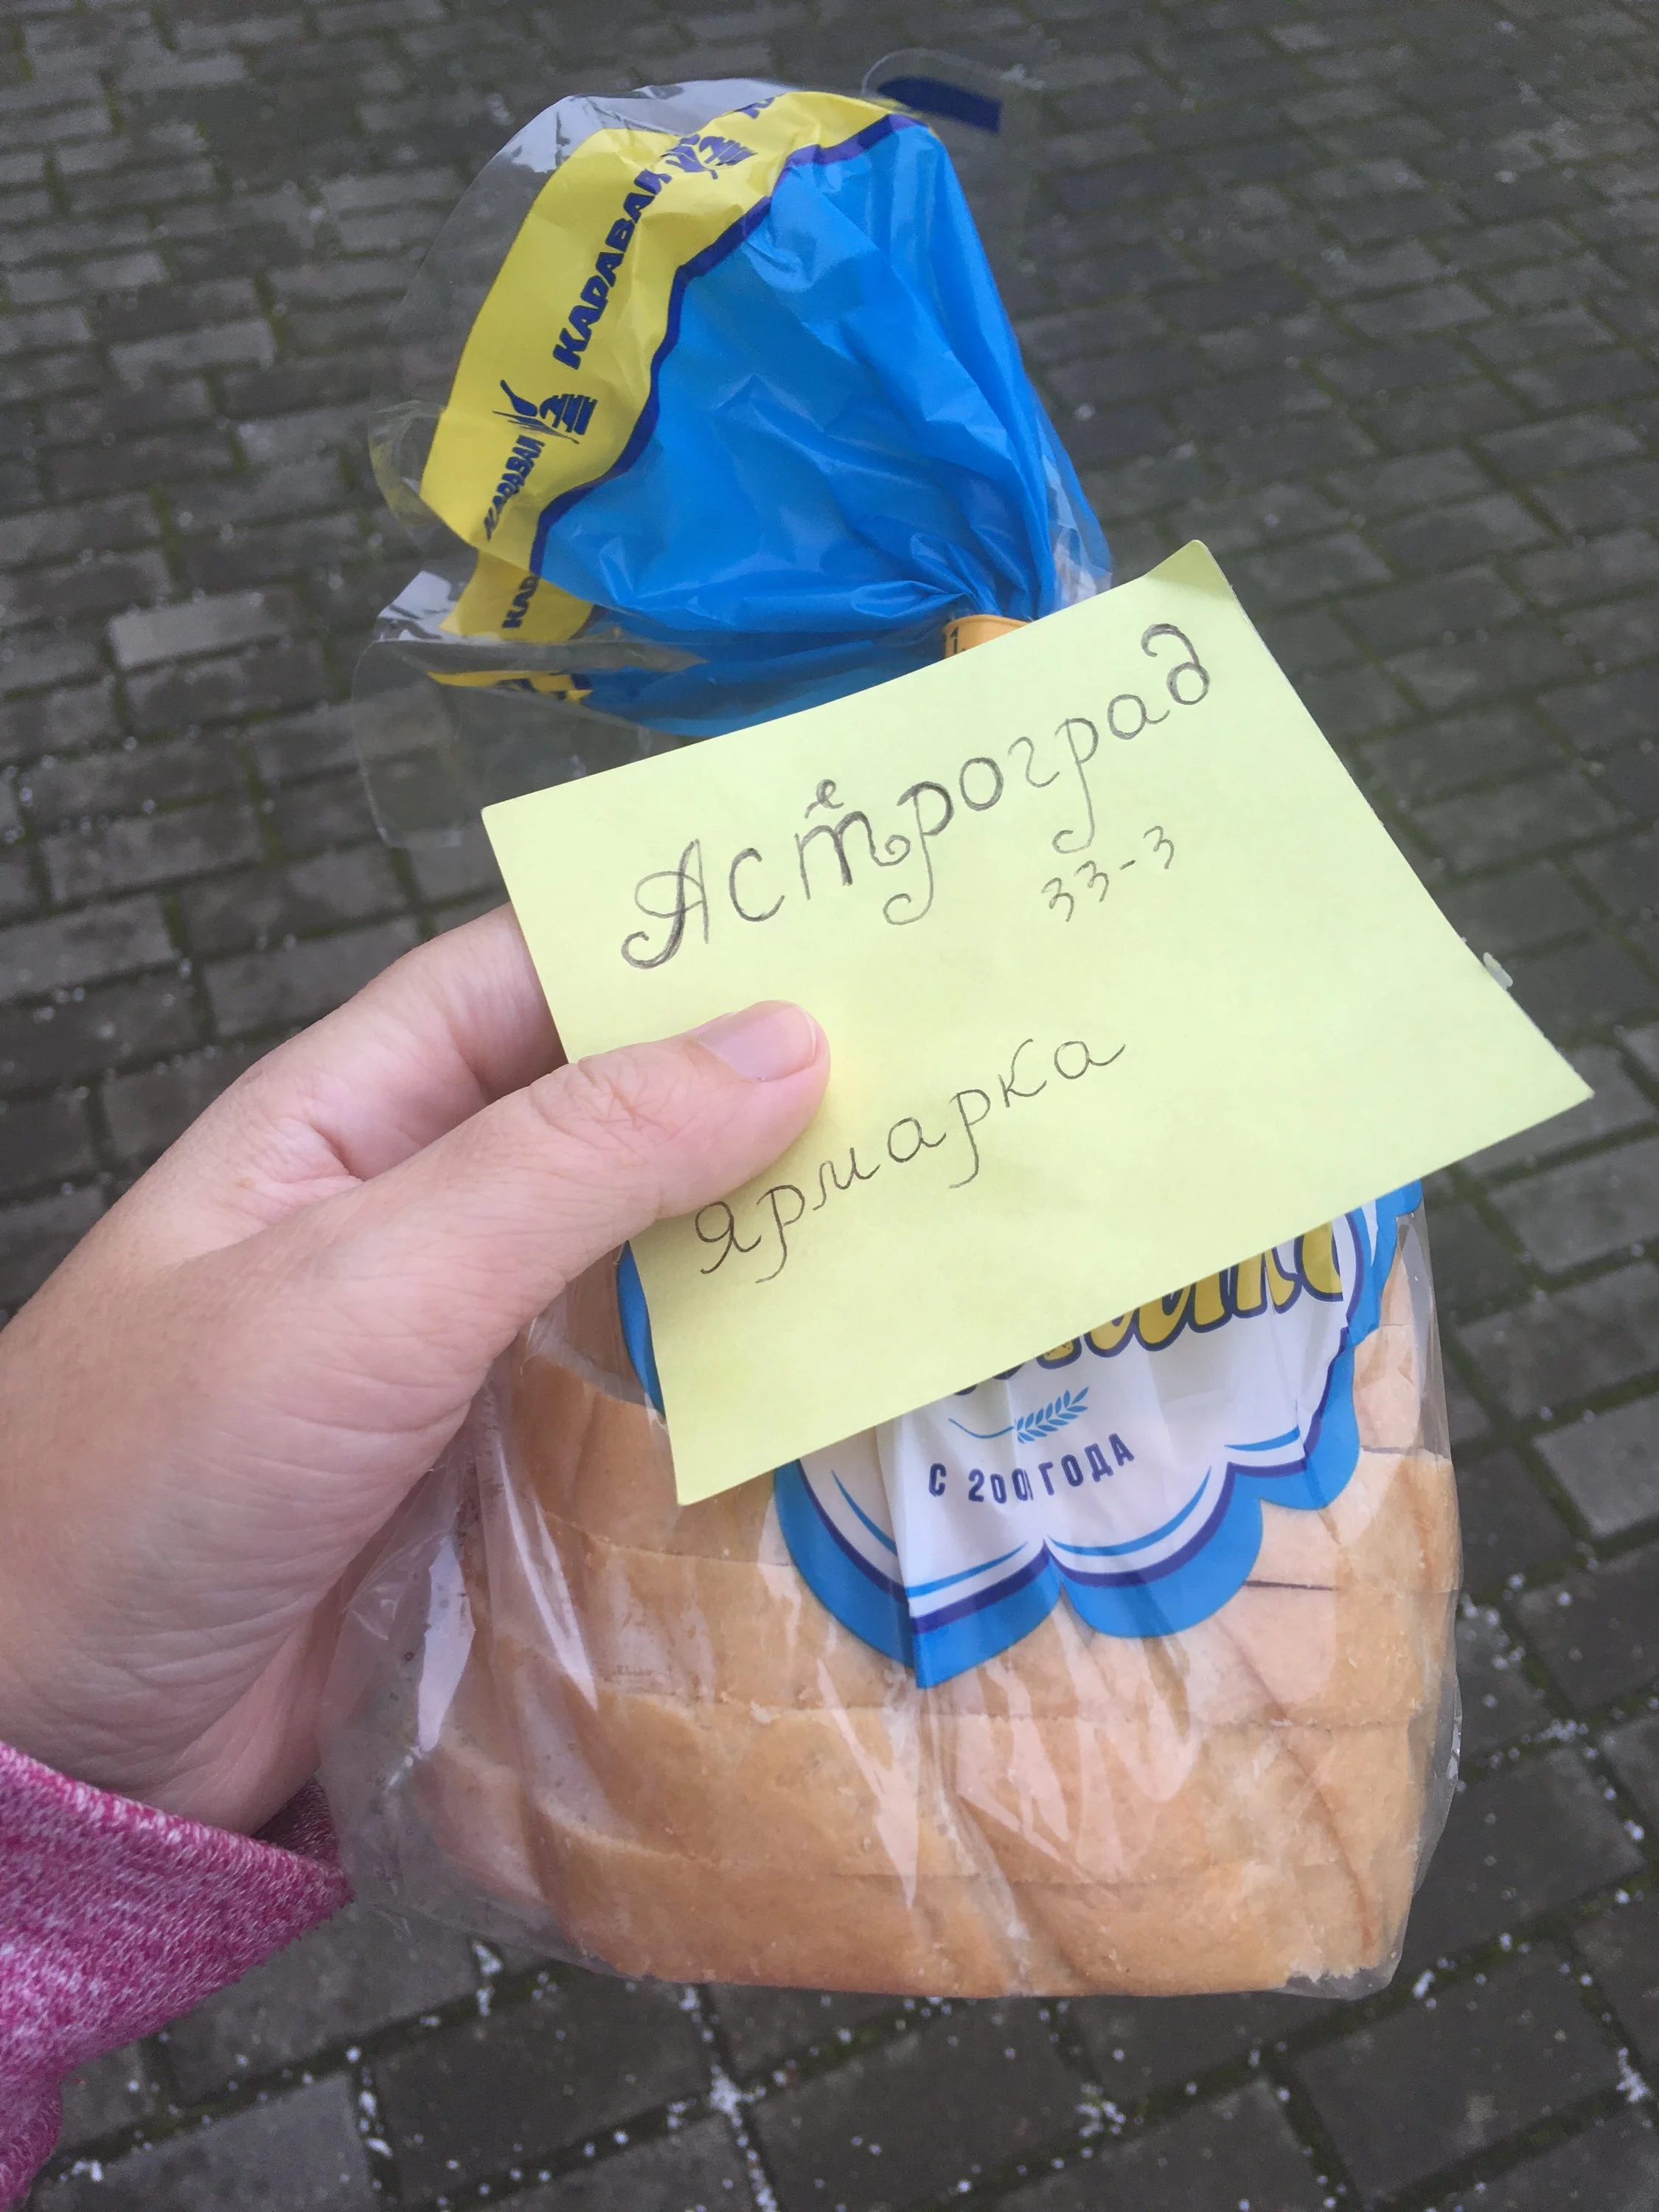 КАРАВАЙ
КАРАВАЙ
КАР
Астероград
33-3
Ярмарка
С 200 ГОДА